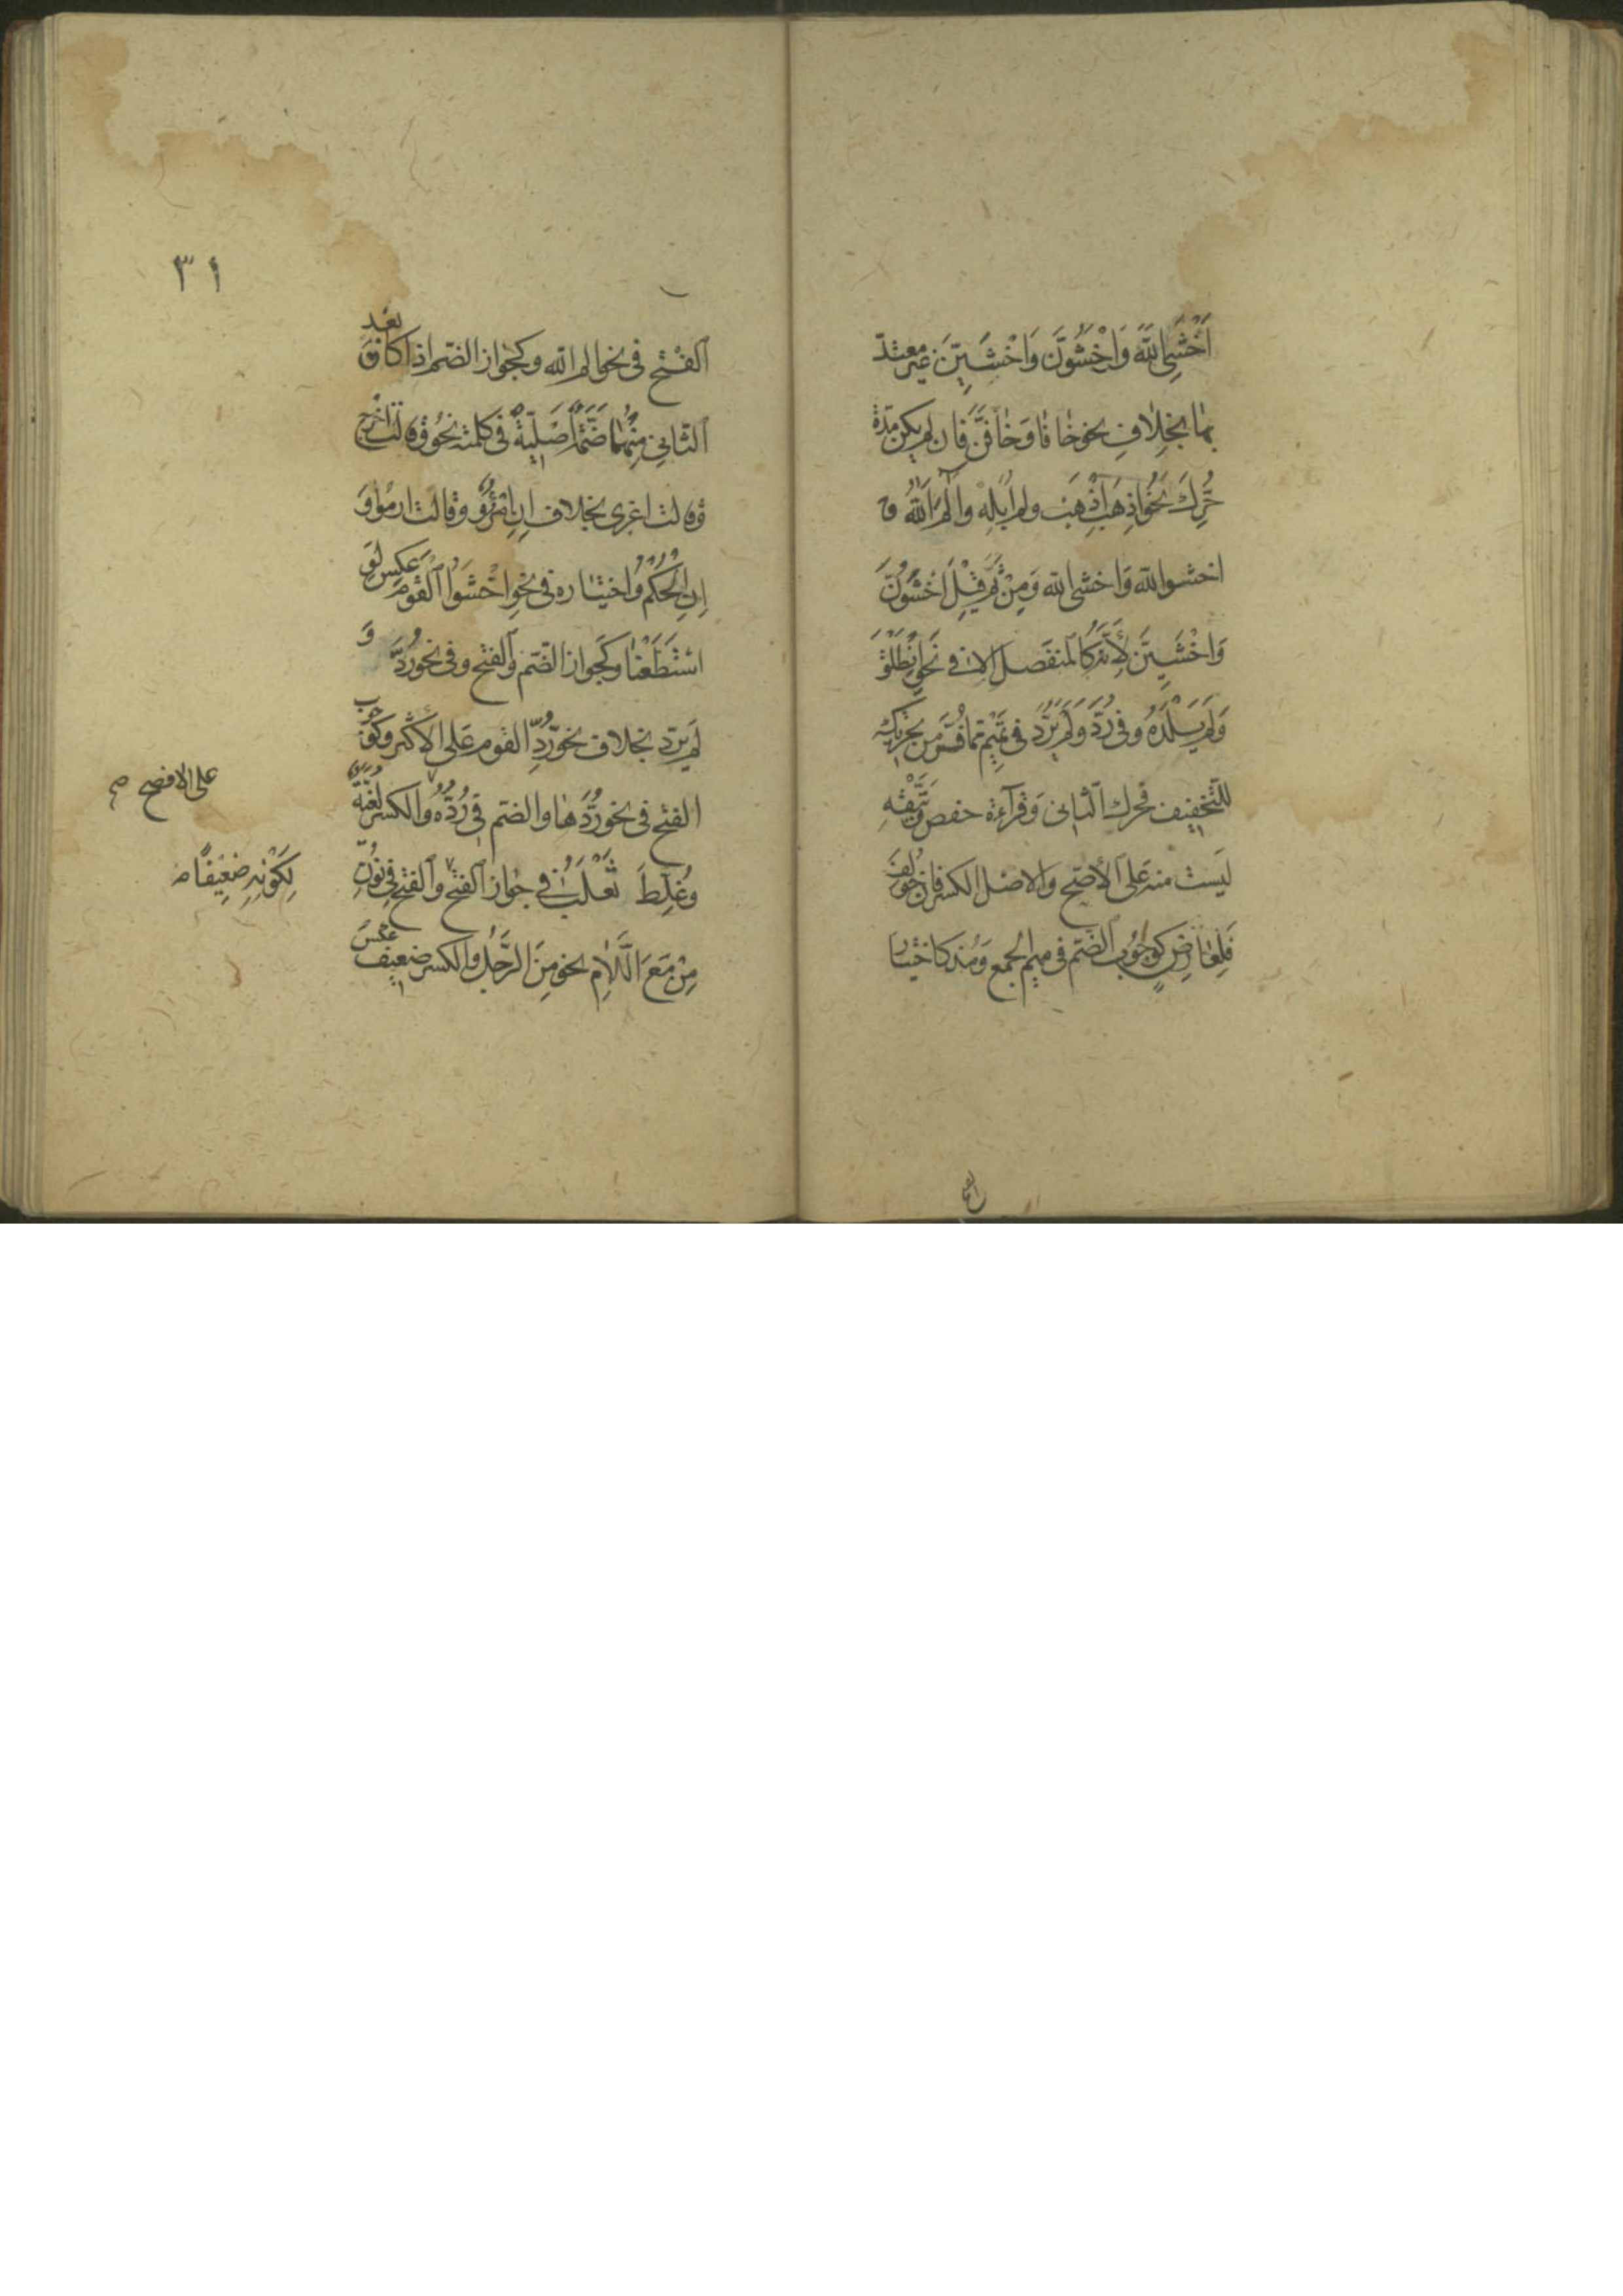 اَخْشَىِ اللّٰهَ وَاخْشَوُنَّ وَاخْشَيِنَّ غير معتدّ
بها بخِلافِ نحو خافا وَخافَنَّ فان لم يكن مدّة
حُرِّكَ نحو اِذهَبِ اذْهَبْ ولم اُبَلِهْ والٓمٓ اَللّٰهُ و
اخشوا اللّه وَاخشى اللّه وَمِنْ ثَمَّ قِيْلَ اخْشَوُنَّ
وَاخْشَيِنَّ لِاَنَّهُ كالمنفصل الا في نحوِ اِنْطَلْقَ
وَلَمْ يَلْدَهُ وفى رُدَّ وَلَمْ يَرُدَّ فى تميم ممّا فُرَّ من تحريكِه
للتّخفيف فحرك الثانى وَقرآءة حفص وَيَتَّقْهِ
ليَست منه عَلى الأصَحّ وَالاصْل الكسر فان خُولِفَ
فَلِعارِضٍ كوجُوب الضّم فى ميم الجمع وَمُذ كاختيار
الفتْح فى نحو الم اللّه وكجواز الضّم اذا كان بَعْد
الثّانى مِنهُما ضَمّة اَصْليّة فى كلمته نحو وَقالت اخْرج
وَقالت اغزى بخلاف اِنِ امْرُؤٌ وَقالت ارموا وَ
اِنِ الحُكْمُ وَاختياره فى نحوِ اخْشَوُا القَوم عَكس لَوِ
اسْتَطَعْنا وكجواز الضّم وَالفتح وفى نحو رُدَّ وَ
لم يَرُدّ بخلاف نحو رُدِّ القوم عَلى الأكثر وكوجُوب
الفتح فى نحو رُدَّها والضّم فى رُدُّهُ وَالكسر لُغَيَّةٌ
على الافصح صح
وَغُلِّطَ ثَعْلَبٌ فى جواز الفتح وَالفتح فى نُونِ
لِكَوْنِهِ ضعِيفًا
مِنْ مَعَ اللّامِ نحو مِنَ الرَّجُلِ وَالكسر ضعيف عكسَ
الفتح
٣١